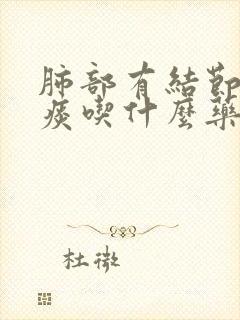 肺部有結節
痰喫什麼藥
杜微